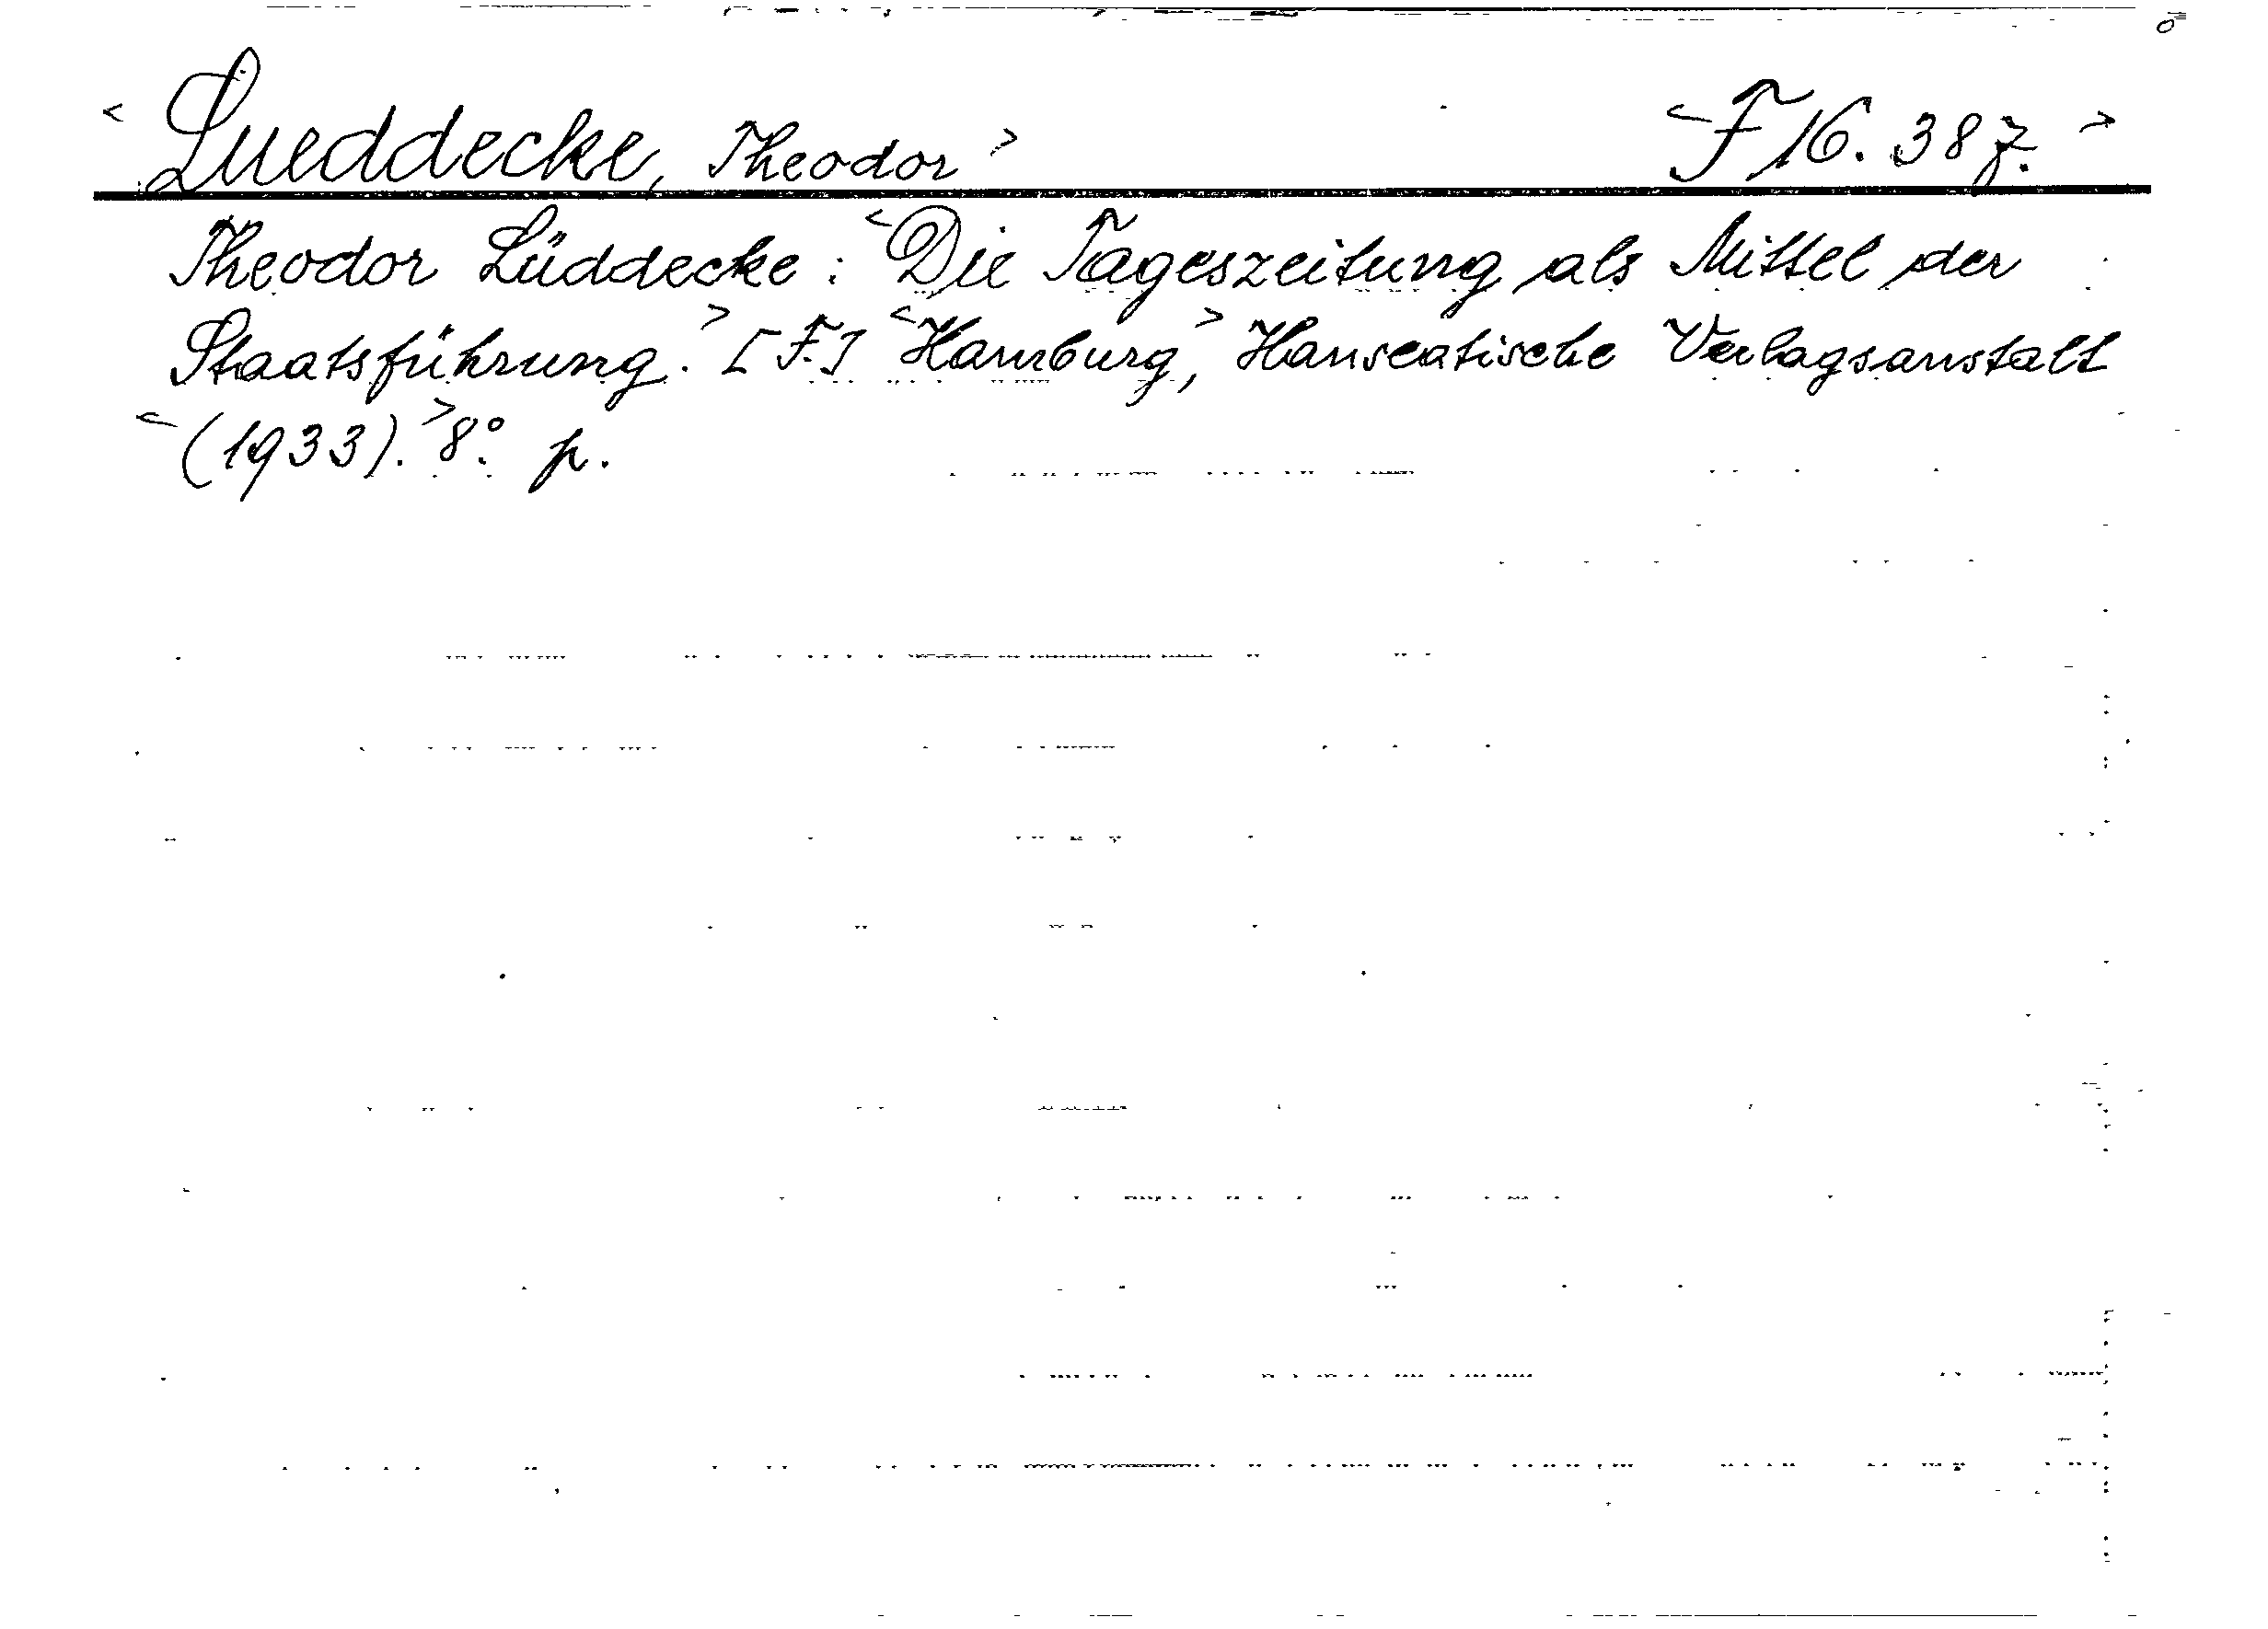 < Lueddecke, Theodor > < F 16. 387. >
Theodor Lüddecke: < Die Tageszeitung als Mittel der
Staatsführung. > [F.] < Hamburg, > Hanseatische Verlagsanstalt
< (1933). > 8° p.